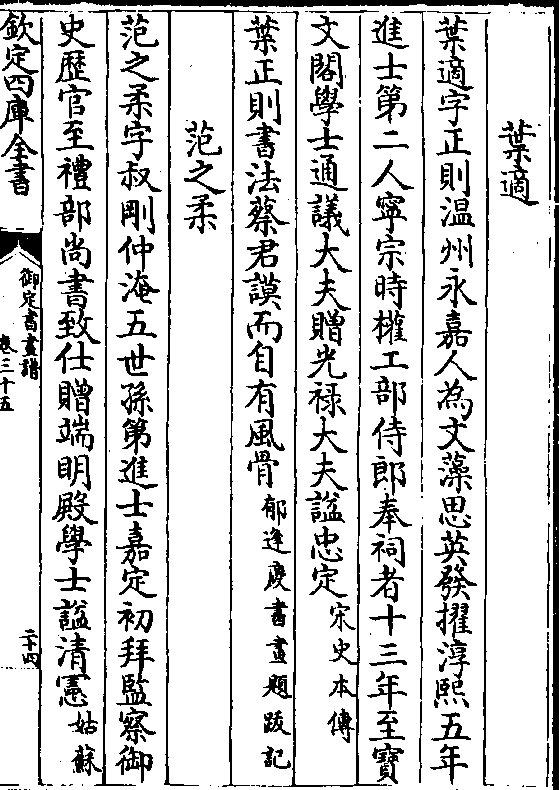 葉適
葉適字正則温州永嘉人為文藻思英發擢淳熙五年
進士第二人寧宗時權工部侍郎奉祠者十三年至寶
文閣學士通議大夫贈光禄大夫諡忠定宋史本傳
葉正則書法蔡君謨而自有風骨郁逢慶書畫題跋記
范之柔
范之柔字叔剛仲淹五世孫第進士嘉定初拜監察御
史歷官至禮部尚書致仕贈端明殿學士諡清憲姑蘇
欽定四庫全書
御定書畫譜
卷三十五
二十四